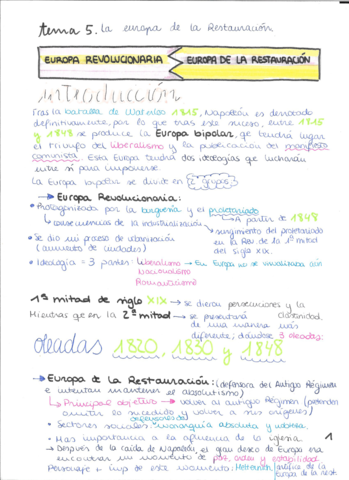 tema 5. La europa de la Restauración.
EUROPA REVOLUCIONARIA
EUROPA DE LA RESTAURACIÓN
introducción
Tras la batalla de Waterloo 1815, Napoleón es derrotado
definitivamente, por lo que tras este suceso, entre 1815
y 1848 se produce la Europa bipolar, que tendrá lugar
el triunfo del liberalismo y la publicación del manifiesto
comunista. Esta Europa tendrá dos ideologías que lucharán
entre sí para imponerse.
La Europa bipolar se divide en 2 grupos:
→ Europa Revolucionaria:
• Protagonizada por la burguesía y el proletariado
↳ consecuencias de la industrialización
→ a partir de 1848
↳ surgimiento del proletariado
en la Rev. de la 1ª mitad
del siglo XIX.
• Se dio un proceso de urbanización
(aumento de ciudades)
• Ideología = 3 partes: liberalismo → En Europa no se visualizaba aún
Nacionalismo
Romanticismo
1ª mitad de siglo XIX → se dieron persecuciones y la clandestinidad.
Mientras que en la 2ª mitad → se presentará
de una manera más
diferente, dándose 3 oleadas:
oleadas 1820, 1830 y 1848
→ Europa de la Restauración: (defensora del Antiguo Régimen
e intentan mantener el absolutismo)
↳ Principal objetivo → volver al antiguo Régimen (pretenden
anular lo sucedido y volver a sus orígenes)
• Sectores sociales defensores de: monarquía absoluta y nobleza.
• Más importancia a la afluencia de la iglesia.
1
→ Después de la caída de Napoleón, el gran deseo de Europa era
encontrar un momento de paz, orden y estabilidad.
Personaje + imp de este momento: Metternich (artífice de la
Europa de la rest.